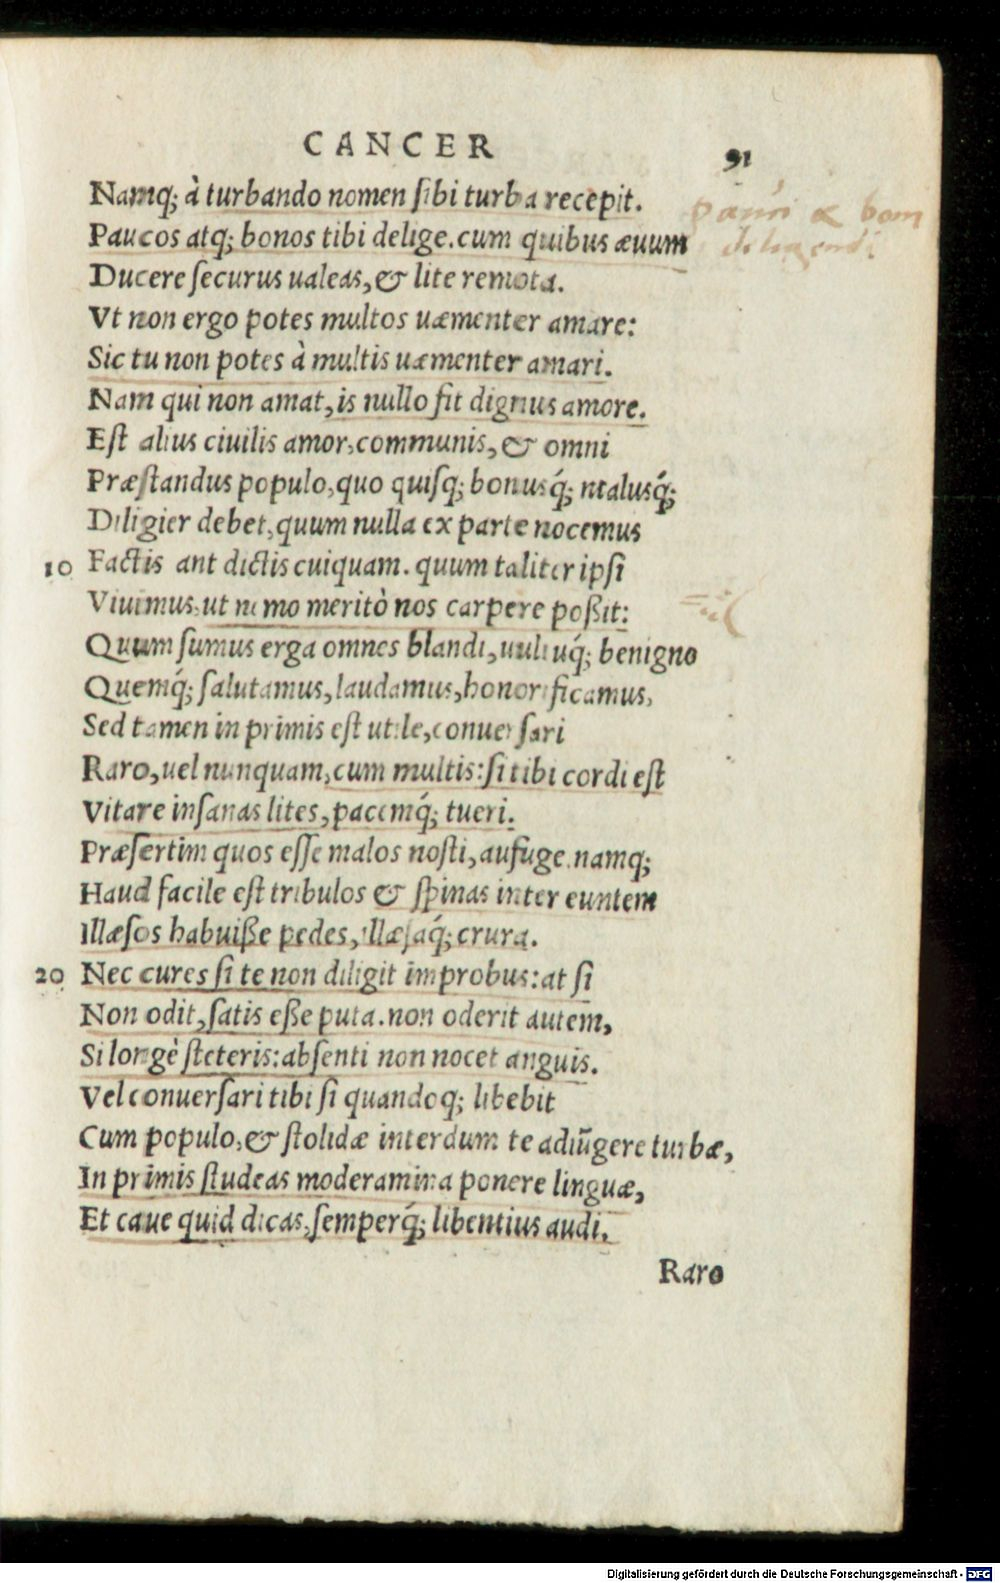 CANCER 91
Namq; à turbando nomen ſibi turba recepit.
Paucos atq; bonos tibi delige. cum quibus æuum
pauci & boni
deligendi
Ducere ſecurus ualeas, & lite remota.
Vt non ergo potes multos uæmenter amare:
Sic tu non potes à multis uæmenter amari.
Nam qui non amat, is nullo fit dignus amore.
Eſt alius ciuilis amor, communis, & omni
Præſtandus populo, quo quiſq; bonusq́; malusq́;
Diligier debet, quum nulla ex parte nocemus
10 Factis ant dictis cuiquam. quum taliter ipſi
Viuimus, ut nemo meritò nos carpere poßit:
Quum ſumus erga omnes blandi, uultuq́; benigno
Quemq́; ſalutamus, laudamus, honorificamus,
Sed tamen in primis eſt utile, conuerſari
Raro, uel nunquam, cum multis: ſi tibi cordi eſt
Vitare inſanas lites, pacemq́; tueri.
Præſertim quos eſſe malos noſti, aufuge. namq;
Haud facile eſt tribulos & ſpinas inter euntem
Illæſos habuiße pedes, illæſaq́; crura.
20 Nec cures ſi te non diligit improbus: at ſi
Non odit, ſatis eße puta. non oderit autem,
Si longè ſteteris: abſenti non nocet anguis.
Vel conuerſari tibi ſi quandoq; libebit
Cum populo, & ſtolidæ interdum te adiūgere turbæ,
In primis ſtudeas moderamina ponere linguæ,
Et caue quid dicas, ſemperq́; libentius audi.
Raro
Digitalisierung gefördert durch die Deutsche Forschungsgemeinschaft - DFG